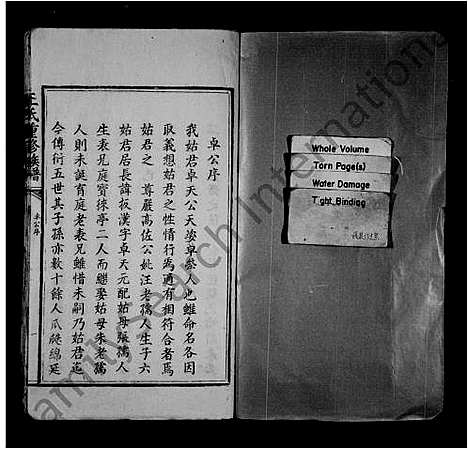 卓公序
我姑君卓天公天姿卓犖人也雖命名各因
取義想姑君之性情行為適有相符合者焉
姑君之 尊嚴高佐公妣汪老孺人生子六
姑君居長諱振漢字卓天元配姑母張孺人
生表兄庭寶徠亭二人而繼娶姑母朱老孺
人則未誕育庭老表兄雖惜未嗣乃姑君迄
今傳衍五世其子孫亦數十餘人瓜瓞綿延
王氏重修族譜
卓公序
Whole Volume
Torn Page(s)
Water Damage
Tight Binding
FamilySearch International